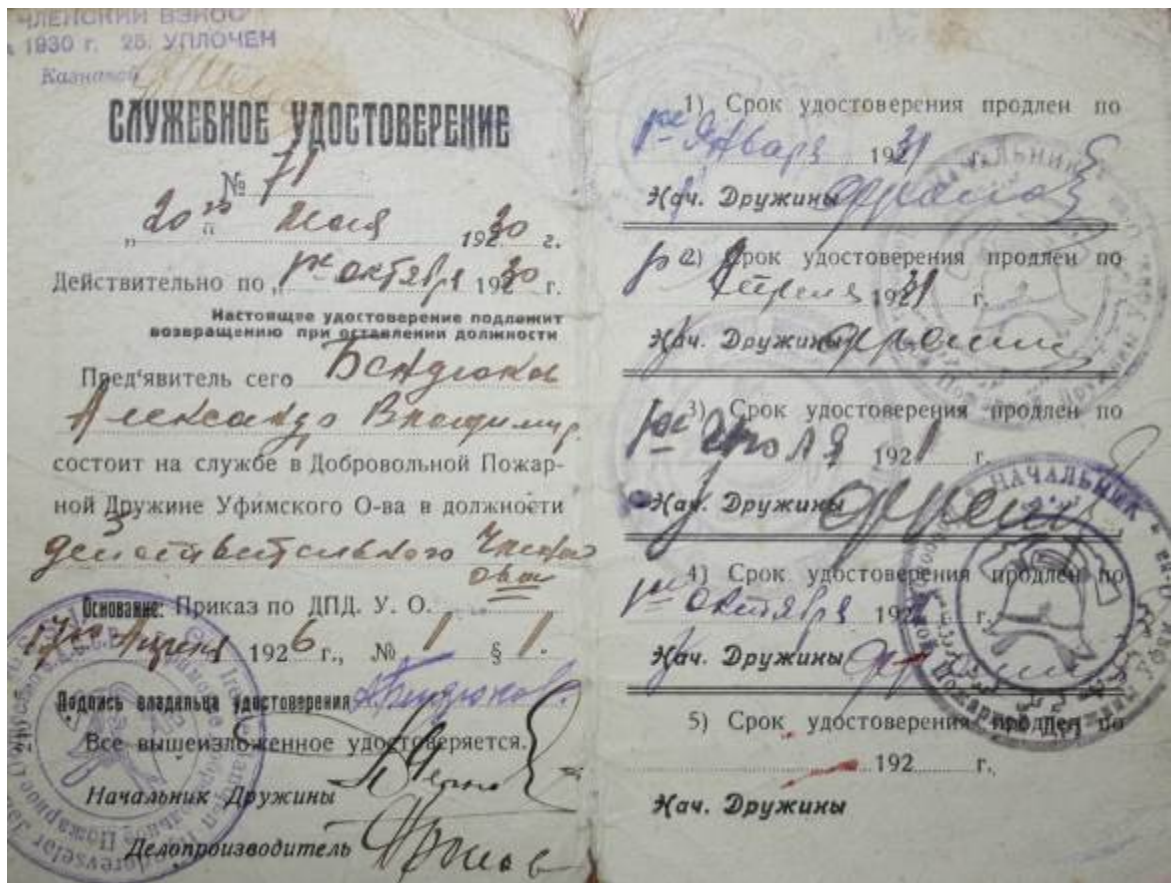 ЧЛЕНСКИЙ ВЗНОС
1930 г. 25. УПЛОЧЕН
Казначей
СЛУЖЕБНОЕ УДОСТОВЕРЕНИЕ
№ 71
„20го“ Мая 1930 г.
Действительно по „1ое октября 1930 г.
Настоящее удостоверение подлежит
возвращению при оставлении должности
Пред'явитель сего Бендюков
Александр Владимир.
состоит на службе в Добровольной Пожар-
ной Дружине Уфимского О-ва в должности
действительного Члена
о-ва
Основание: Приказ по ДПД. У. О.
17го Апреля 1926 г., № 1 § 1.
Подпись владельца удостоверения А.Бендюков.
Все вышеизложенное удостоверяется.
Начальник Дружины
Делопроизводитель
1) Срок удостоверения продлен по
1ое Января 1931 г.
Нач. Дружины
2) Срок удостоверения продлен по
Апреля 1931 г.
Нач. Дружины
3) Срок удостоверения продлен по
1ое Июля 1931 г.
Нач. Дружины
4) Срок удостоверения продлен по
1ое октября 1931 г.
Нач. Дружины
5) Срок удостоверения продлен по
192 г.,
Нач. Дружины
НАЧАЛЬНИК